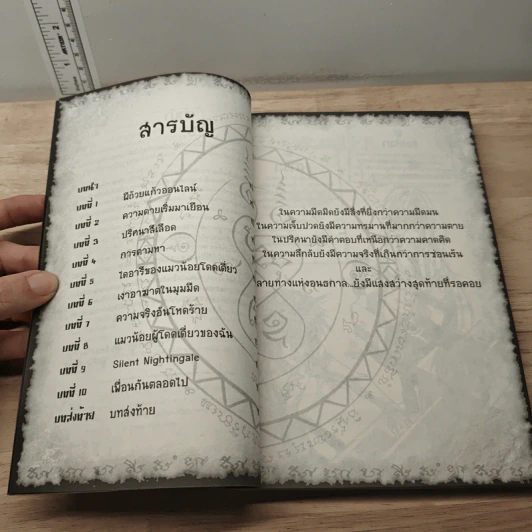 สารบัญ
บทนำ
บทที่ 1 ผีถ้วยแก้วออนไลน์
บทที่ 2 ความตายเริ่มมาเยือน
บทที่ 3 ปริศนาสีเลือด
บทที่ 4 การตามหา
บทที่ 5 ไดอารีของแมวน้อยโดดเดี่ยว
บทที่ 6 เงาอาฆาตในมุมมืด
บทที่ 7 ความจริงอันโหดร้าย
บทที่ 8 แมวน้อยผู้โดดเดี่ยวของฉัน
บทที่ 9 Silent Nightingale
บทที่ 10 เพื่อนกันตลอดไป
บทส่งท้าย บทส่งท้าย
ในความมืดมิดยังมีสิ่งที่ยิ่งกว่าความมืดมน
ในความเจ็บปวดยังมีความทรมานที่มากกว่าความตาย
ในปริศนายังมีคำตอบที่เหนือกว่าความคาดคิด
ในความลึกลับยังมีความจริงที่เกินกว่าการซ่อนเร้น
และ
ลายทางแห่งอนธกาล...ยังมีแสงสว่างสุดท้ายที่รอคอย